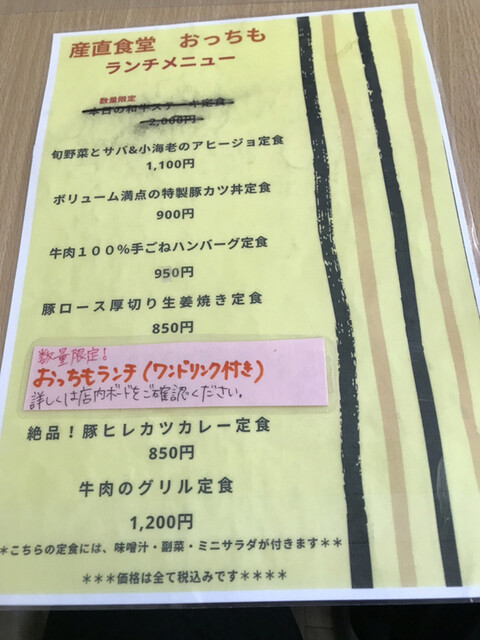 産直食堂　おっちも
ランチメニュー
数量限定
本日の和牛ステーキ定食
2,000円
旬野菜とサバ&小海老のアヒージョ定食
1,100円
ボリューム満点の特製豚カツ丼定食
900円
牛肉１００％手ごねハンバーグ定食
950円
豚ロース厚切り生姜焼き定食
850円
数量限定！
おっちもランチ（ワンドリンク付き）
詳しくは店内ボードをご確認ください。
絶品！豚ヒレカツカレー定食
850円
牛肉のグリル定食
1,200円
＊こちらの定食には、味噌汁・副菜・ミニサラダが付きます＊＊
＊＊＊価格は全て税込みです＊＊＊＊